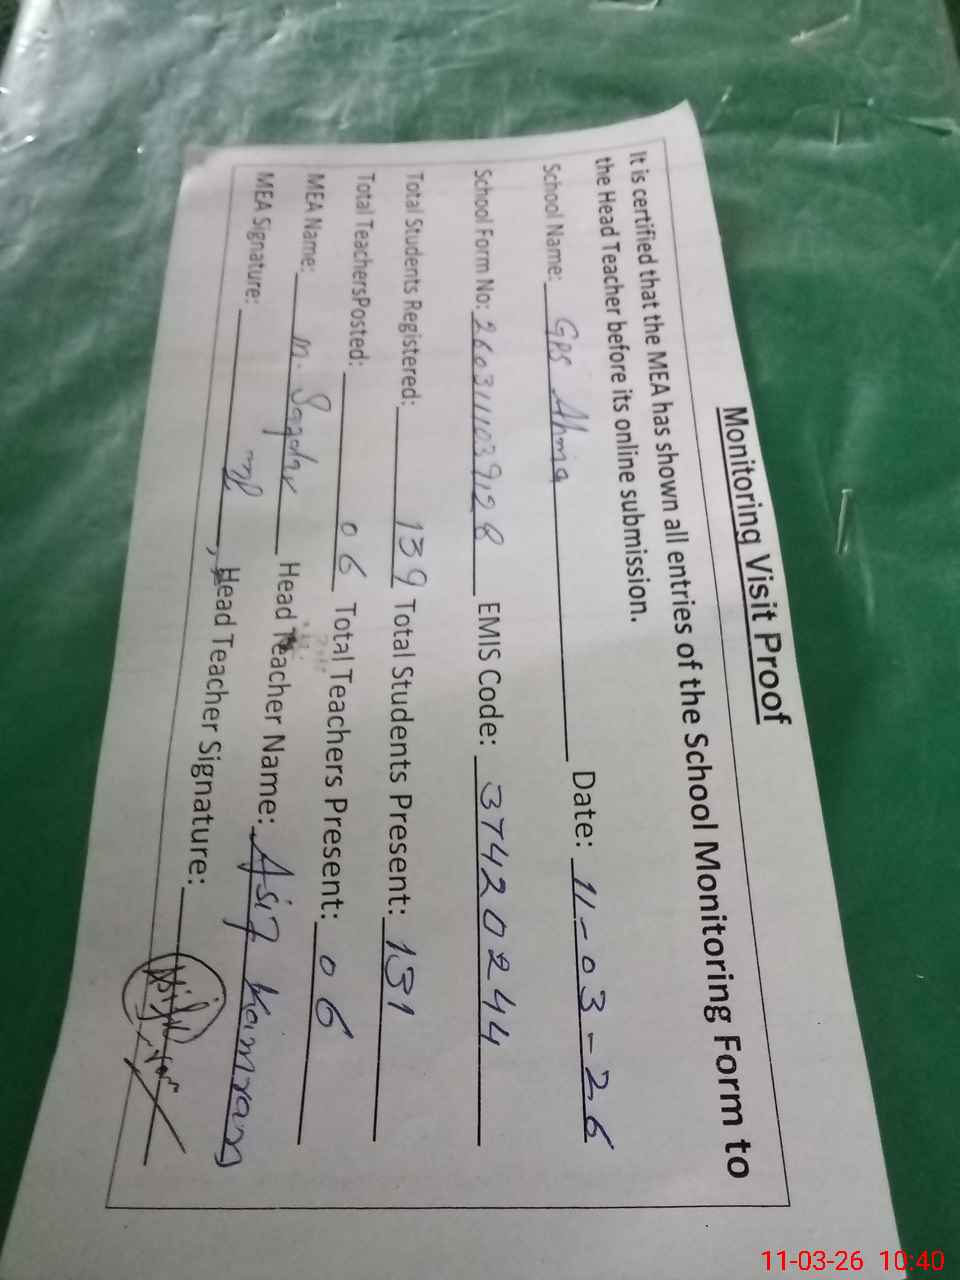 Monitoring Visit Proof
It is certified that the MEA has shown all entries of the School Monitoring Form to
the Head Teacher before its online submission.
School Name: GPS Ahmia Date: 11-03-26
School Form No: 2603111039128 EMIS Code: 37420244
Total Students Registered: 139 Total Students Present: 131
Total TeachersPosted: 06 Total Teachers Present: 06
MEA Name: M. Head Teacher Name: Asif Kamran
MEA Signature: , Head Teacher Signature:
11-03-26 10:40